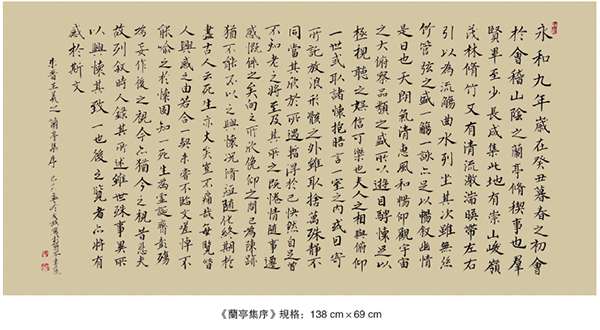 永和九年歲在癸丑暮春之初會
於會稽山陰之蘭亭脩稧事也羣
賢畢至少長咸集此地有崇山峻嶺
茂林脩竹又有清流激湍暎帶左右
引以為流觴曲水列坐其次雖無絲
竹管弦之盛一觴一詠亦足以暢敘幽情
是日也天朗氣清惠風和暢仰觀宇宙
之大俯察品類之盛所以遊目騁懷足以
極視聽之娛信可樂也夫人之相與俯仰
一世或取諸懷抱晤言一室之內或因寄
所託放浪形骸之外雖取捨萬殊靜不
同當其欣於所遇暫得於己快然自足曾
不知老之將至及其所之既惓情隨事遷
感慨係之矣向之所欣俛仰之間已為陳跡
猶不能不以之興懷況脩短隨化終期於
盡古人云死生亦大矣豈不痛哉每覽昔
人興感之由若合一契未嘗不臨文嗟悼不
能喻之於懷固知一死生為虛誕齊彭殤
為妄作後之視今亦猶今之視昔悲夫
故列敘時人錄其所述雖世殊事異所
以興懷其致一也後之覽者亦將有
感於斯文
東晉王羲之蘭亭集序
《蘭亭集序》規格：138 cm×69 cm